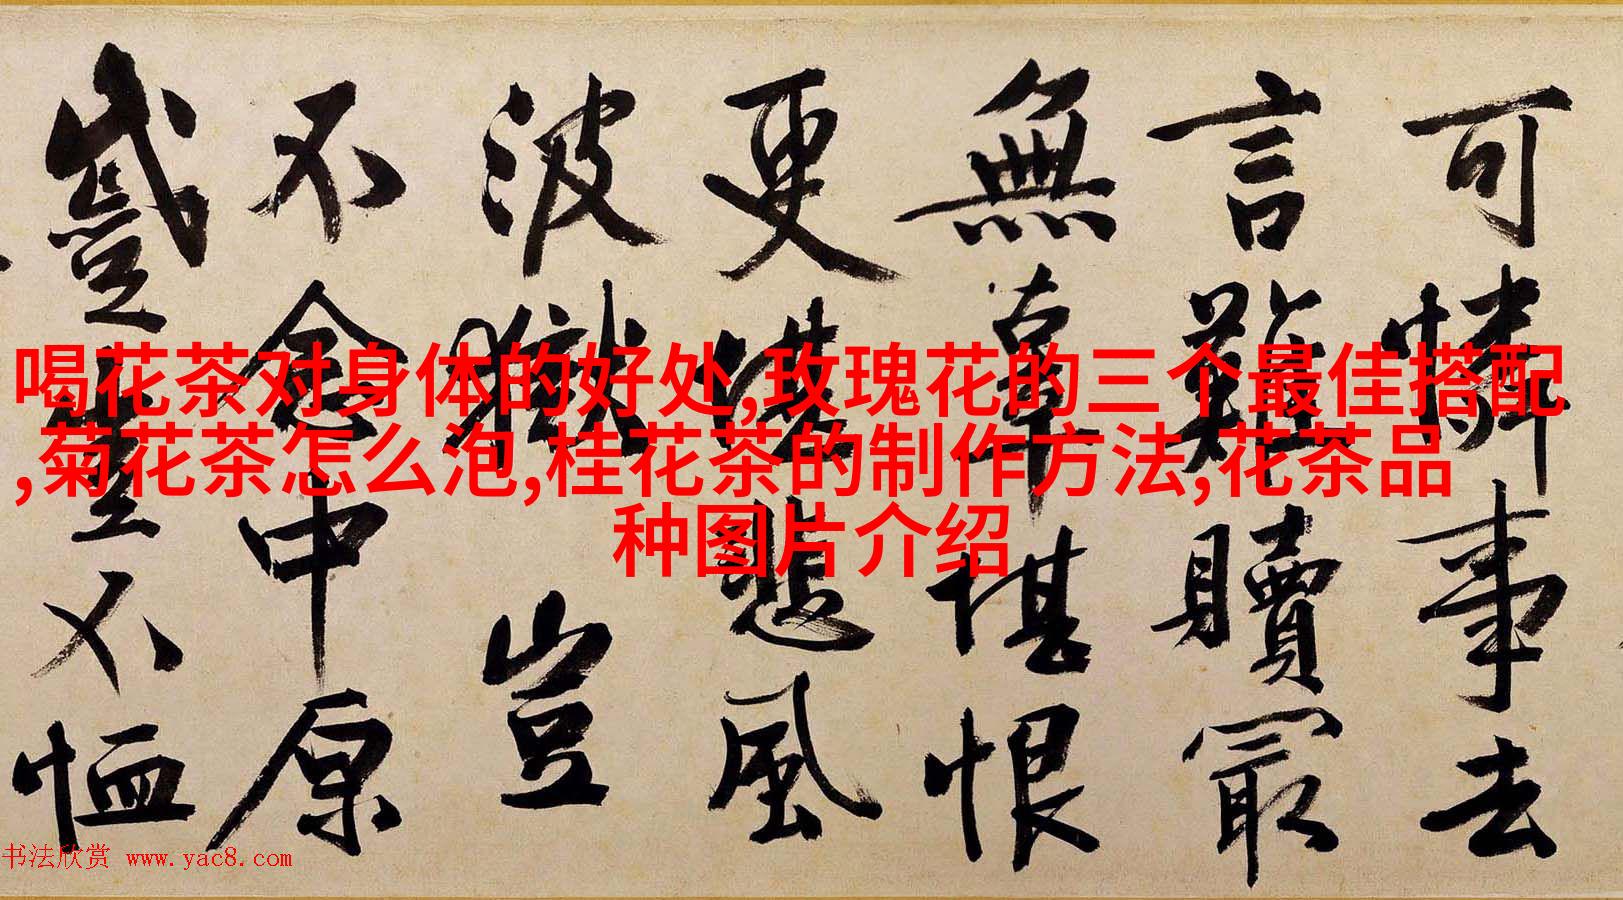 可憐事去
言難贖冣
無辜堪恨
更堪悲風
波獄豈
不念中原
蹙豈不恤
喝花茶对身体的好处,玫瑰花的三个最佳搭配
,菊花茶怎么泡,桂花茶的制作方法,花茶品
种图片介绍
书法欣赏 www.yac8.com